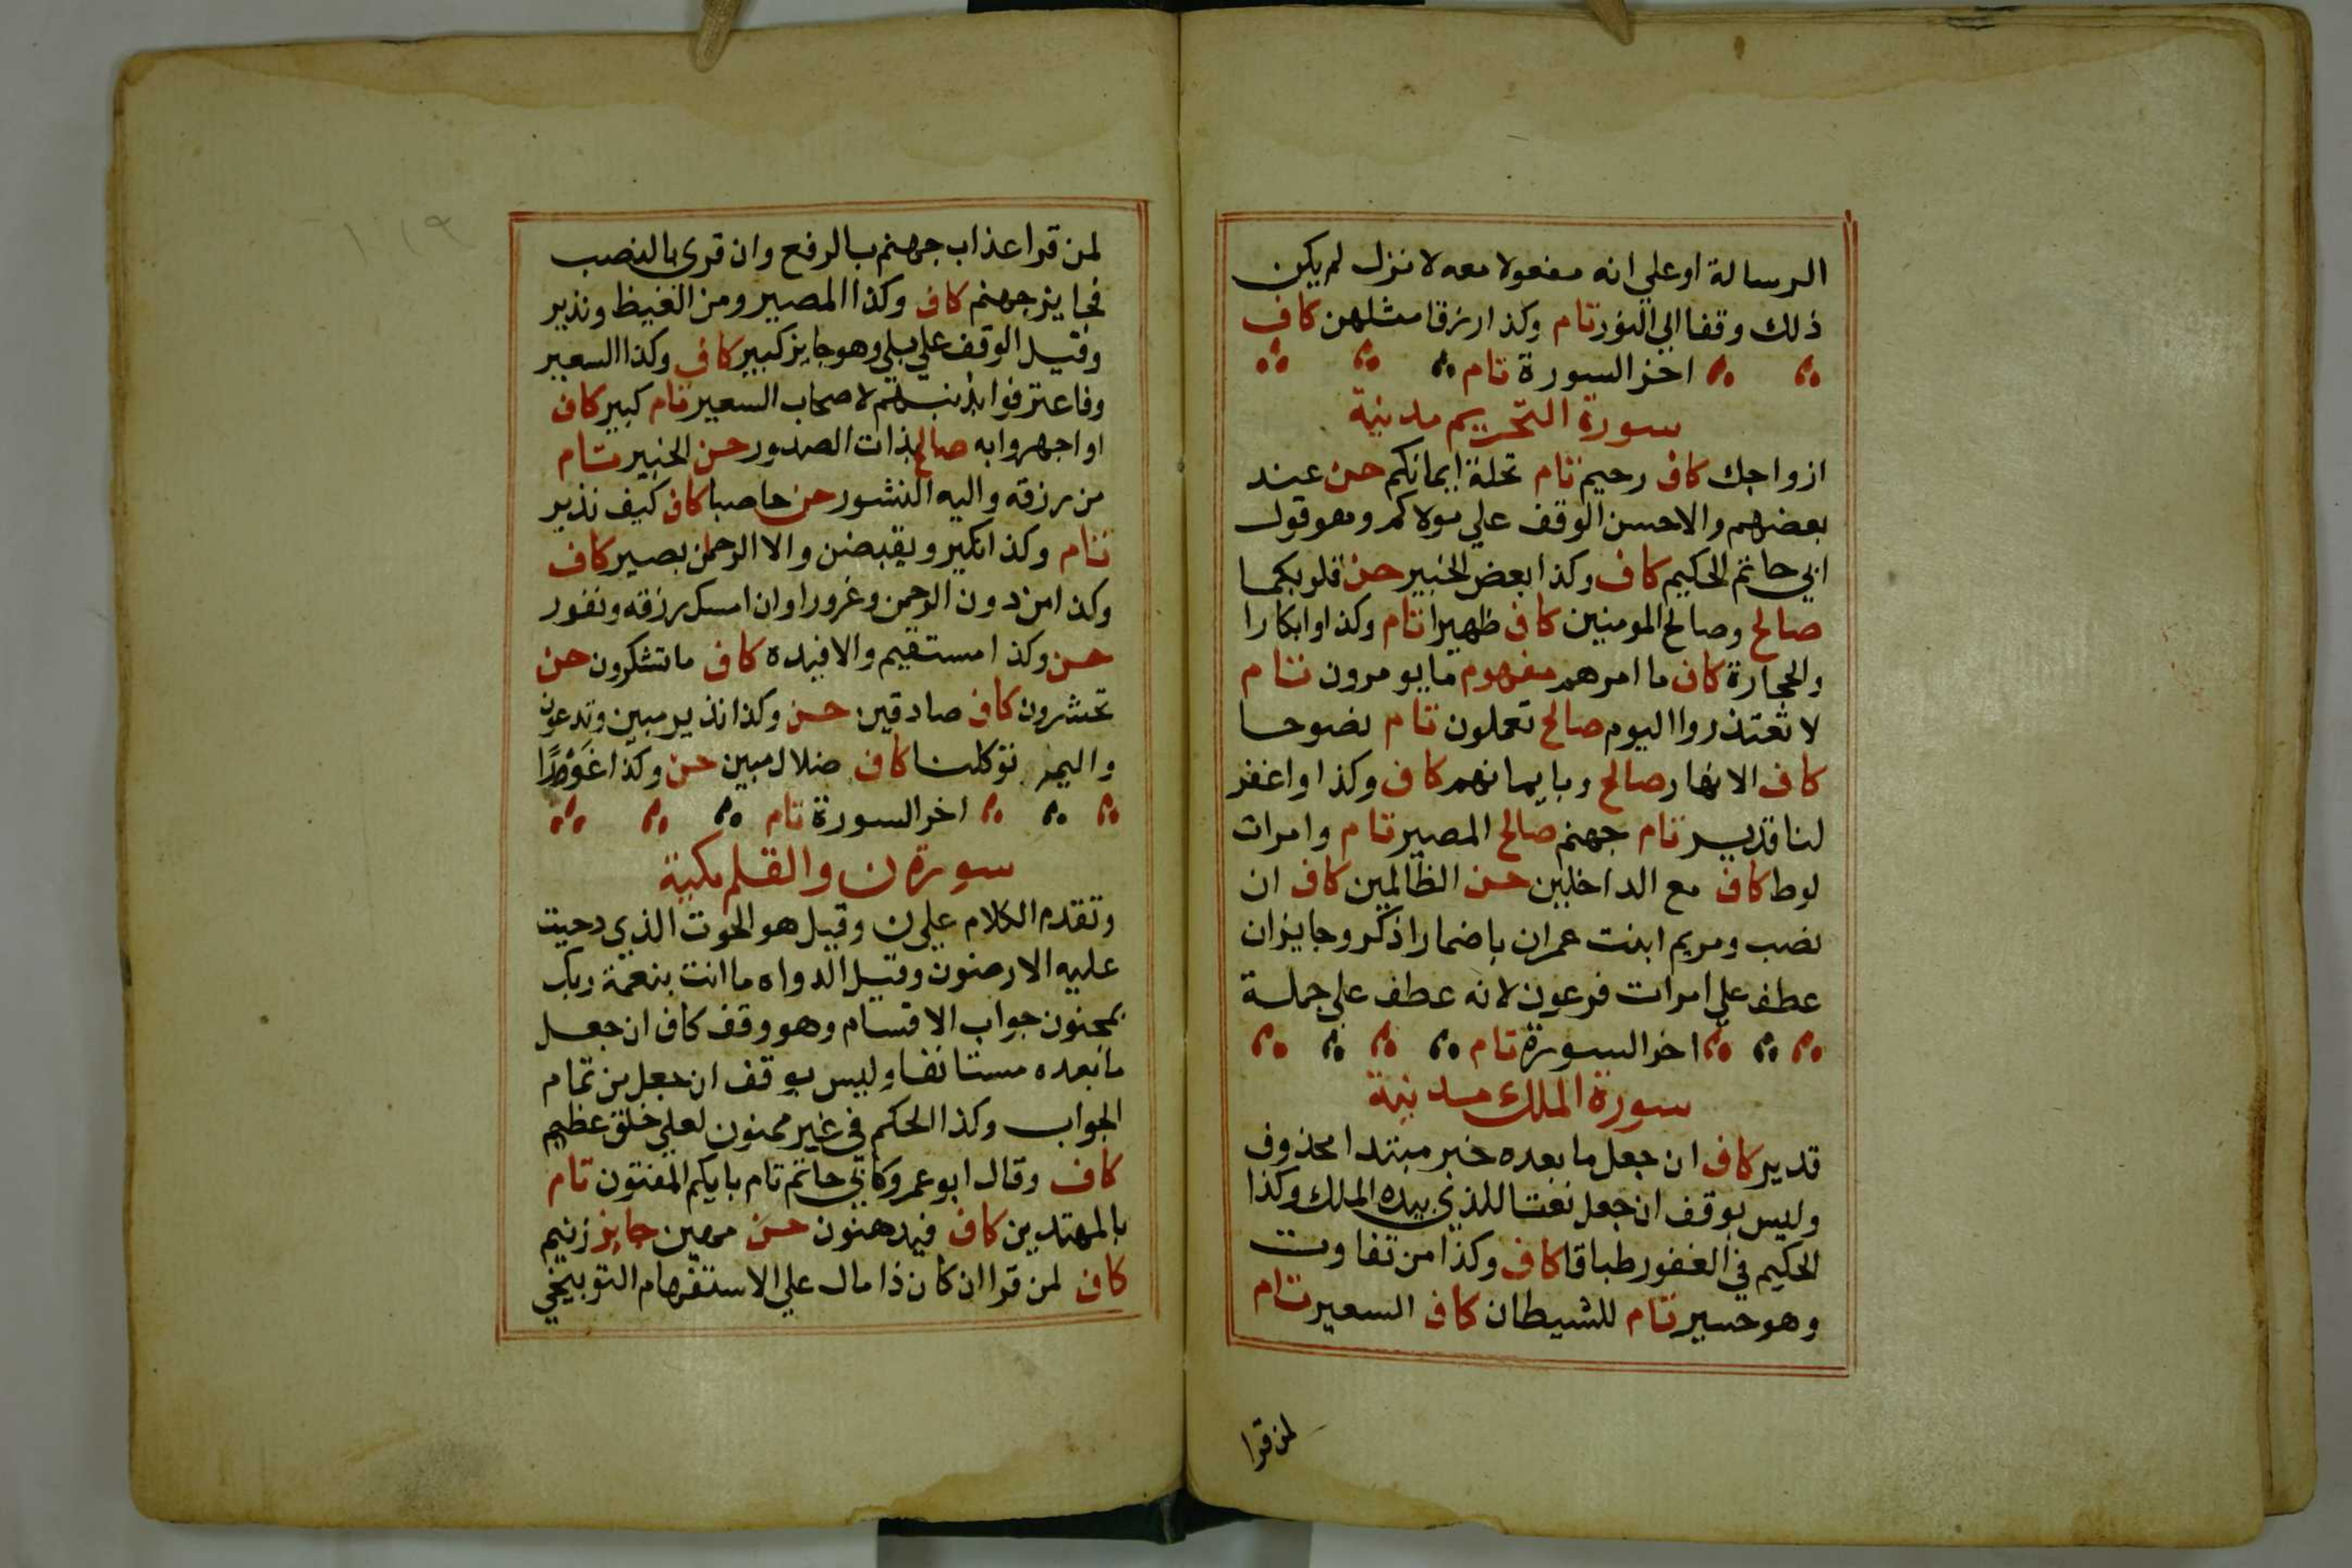 الرسالة او علي انه مفعولا معه لا نزل لم يكن
ذلك وقفا الي النور تام وكذا رزقا مثلهن كاف
اخر السورة تام
سورة التحريم مدنية
ازواجك كاف رحيم تام تحلة ايمانكم حسن عند
بعضهم والاحسن الوقف علي مولاكم وهو قول
ابي حاتم الحكيم كاف وكذا بعض الخبير حسن قلوبكما
صالح وصالح المومنين كاف ظهيرا تام وكذا وابكارا
والحجارة كاف ما امرهم مفهوم ما يومرون تام
لا تعتذروا اليوم صالح تعملون تام نصوحا
كاف الانهار صالح وبايمانهم كاف وكذا واغفر
لنا قدير تام جهنم صالح المصير تام وامرات
لوط كاف مع الداخلين حسن الظالمين كاف ان
نصب ومريم ابنت عمران باضمار اذكر وجايز ان
عطف علي امرات فرعون لانه عطف علي جملة
اخر السورة تام
سورة الملك مدنية
قدير كاف ان جعل ما بعده خبر مبتدا محذوف
وليس بوقف ان جعل نعتا للذي بيده الملك وكذا
الحكيم في الغفور طباقا كاف وكذا من تفاوت
وهو حسير تام للشيطان كاف السعير تام
لمن قرا
١١٩
لمن قرا عذاب جهنم بالرفع وان قرى بالنصب
فجايز جهنم كاف وكذا المصير ومن الغيظ ونذير
وقيل الوقف علي بلي وهو جايز كبير كاف وكذا السعير
وفاعترفوا بذنبهم لاصحاب السعير تام كبير كاف
او اجهروا به صالح بذات الصدور حسن الخبير تام
من رزقه واليه النشور حسن حاصبا كاف كيف نذير
تام وكذا نكير ويقبضن والا الرحمن بصير كاف
وكذا من دون الرحمن وغرور او ان امسك رزقه ونفور
حسن وكذا مستقيم والافيدة كاف ما تشكرون حسن
تحشرون كاف صادقين حسن وكذا نذير مبين وتدعون
واليم توكلنا كاف ضلال مبين حسن وكذا غَوْرًا
اخر السورة تام
سورة ن والقلم مكية
وتقدم الكلام علي ن وقيل هو الحوت الذي دحيت
عليه الارضون وقيل الدواه ما انت بنعمة ربك
بمجنون جواب الاقسام وهو وقف كاف ان جعل
ما بعده مستانفا وليس بوقف ان جعل من تمام
الجواب وكذا الحكم في غير ممنون لعلي خلق عظيم
كاف وقال ابو عمرو كابي حاتم تام بايكم المفتون تام
بالمهتدين كاف فيدهنون حسن مهين جايز زنيم
كاف لمن قرا ان كان ذا مال علي الاستفهام التوبيخي